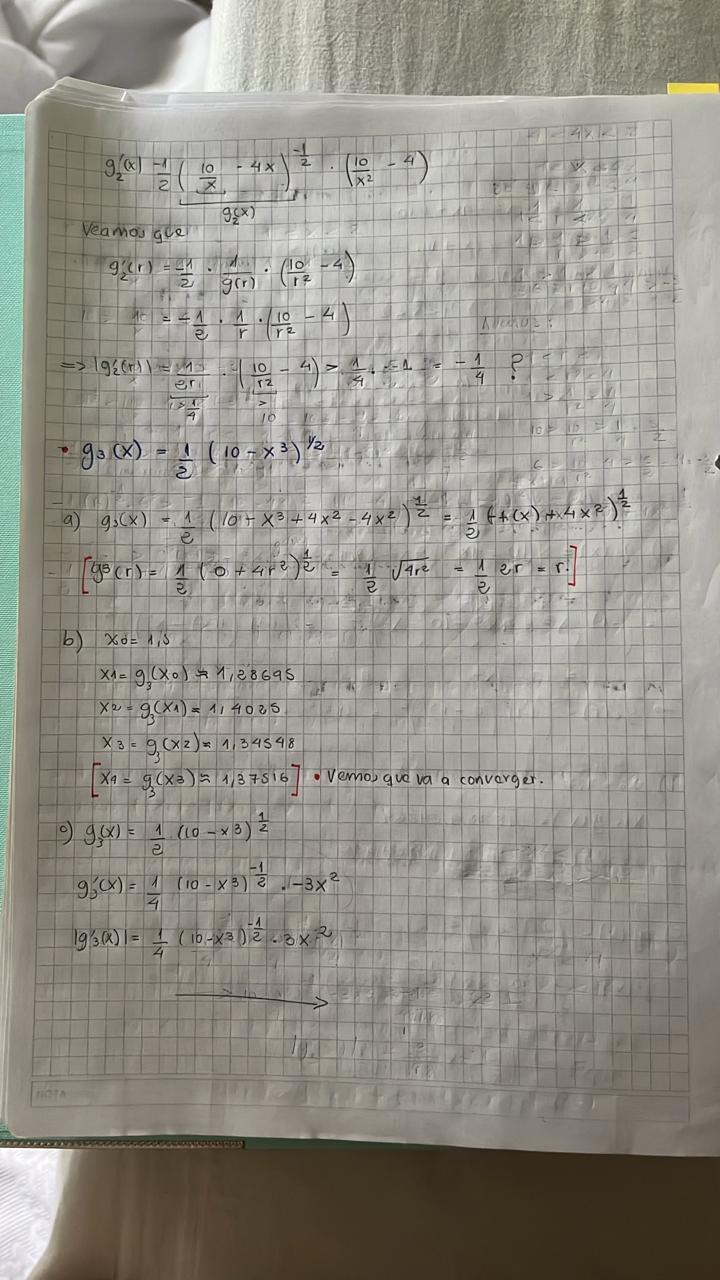 g₂'(x) -1/2 (10/x - 4x)^(-1/2) · (10/x² - 4)
g₂(x)
Veamos que
g₂'(r) = -1/2 · 1/g(r) · (10/r² - 4)
= -1/2 · 1/r · (10/r² - 4)
=> |g₂'(r)| = 1/2r · (10/r² - 4) > 1/4 · -1 = -1/4 ?
> 1/4 >
10
• g₃(x) = 1/2 (10 - x³)^(1/2)
a) g₃(x) = 1/2 (10 - x³ + 4x² - 4x²)^(1/2) = 1/2 (-f(x) + 4x²)^(1/2)
[g₃(r) = 1/2 (0 + 4r²)^(1/2) = 1/2 √4r² = 1/2 2r = r.]
b) x0 = 1,5
x1 = g₃(x0) ≈ 1,28695
x2 = g₃(x1) ≈ 1,4025
x3 = g₃(x2) ≈ 1,34548
[x4 = g₃(x3) ≈ 1,37516] • Vemos que va a converger.
c) g₃(x) = 1/2 (10 - x³)^(1/2)
g₃'(x) = 1/4 (10 - x³)^(-1/2) · -3x²
|g₃'(x)| = 1/4 (10 - x³)^(-1/2) · 3x²